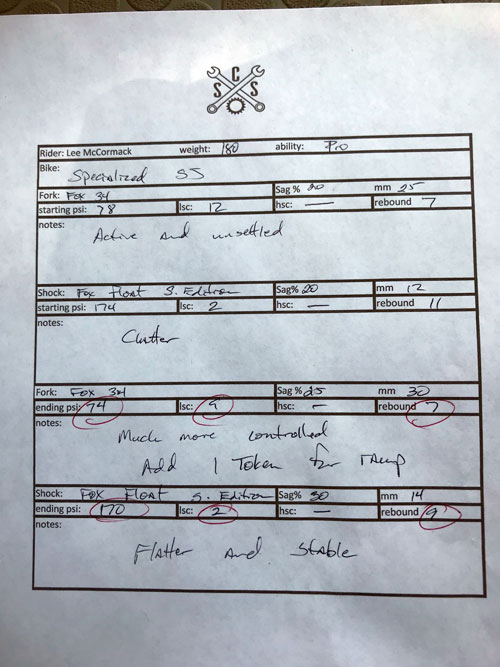 S C S
Rider: Lee McCormack weight: 180 ability: Pro
Bike: Specialized SJ
Fork: Fox 34 Sag % 20 mm 25
starting psi: 78 lsc: 12 hsc: — rebound 7
notes:
Active and unsettled
Shock: Fox Float S. Edition Sag% 20 mm 12
starting psi: 174 lsc: 2 hsc: — rebound 11
notes:
Chatter
Fork: Fox 34 Sag % 25 mm 30
ending psi: 74 lsc: 9 hsc: — rebound 7
notes:
Much more controlled
Add 1 Token for ramp
Shock: Fox Float S. Edition Sag% 30 mm 14
ending psi: 170 lsc: 2 hsc: — rebound 9
notes:
Flatter and stable